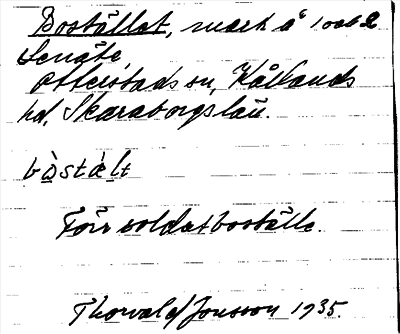 Bostället, mark å 1 och 2
Senäte,
Otterstads sn, Kållands
hd, Skaraborgs län.
bòstält
Förr soldatboställe.
Thorvald Jonsson 1935.